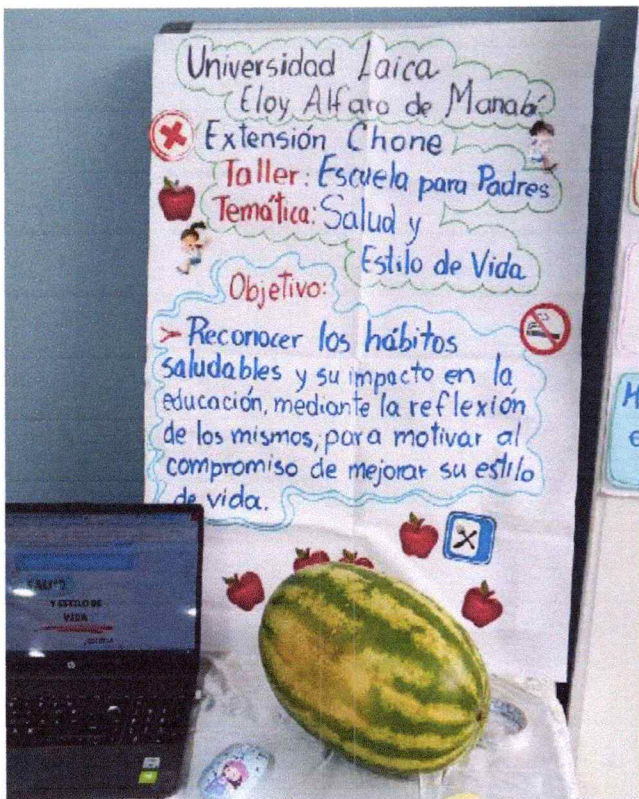 Universidad Laica
Eloy Alfaro de Manabí
Extensión Chone
Taller: Escuela para Padres
Temática: Salud y
Estilo de Vida
Objetivo:
➤ Reconocer los hábitos
saludables y su impacto en la
educación, mediante la reflexión
de los mismos, para motivar al
compromiso de mejorar su estilo
de vida.
SALUD
Y ESTILO DE
VIDA
hp
H
e